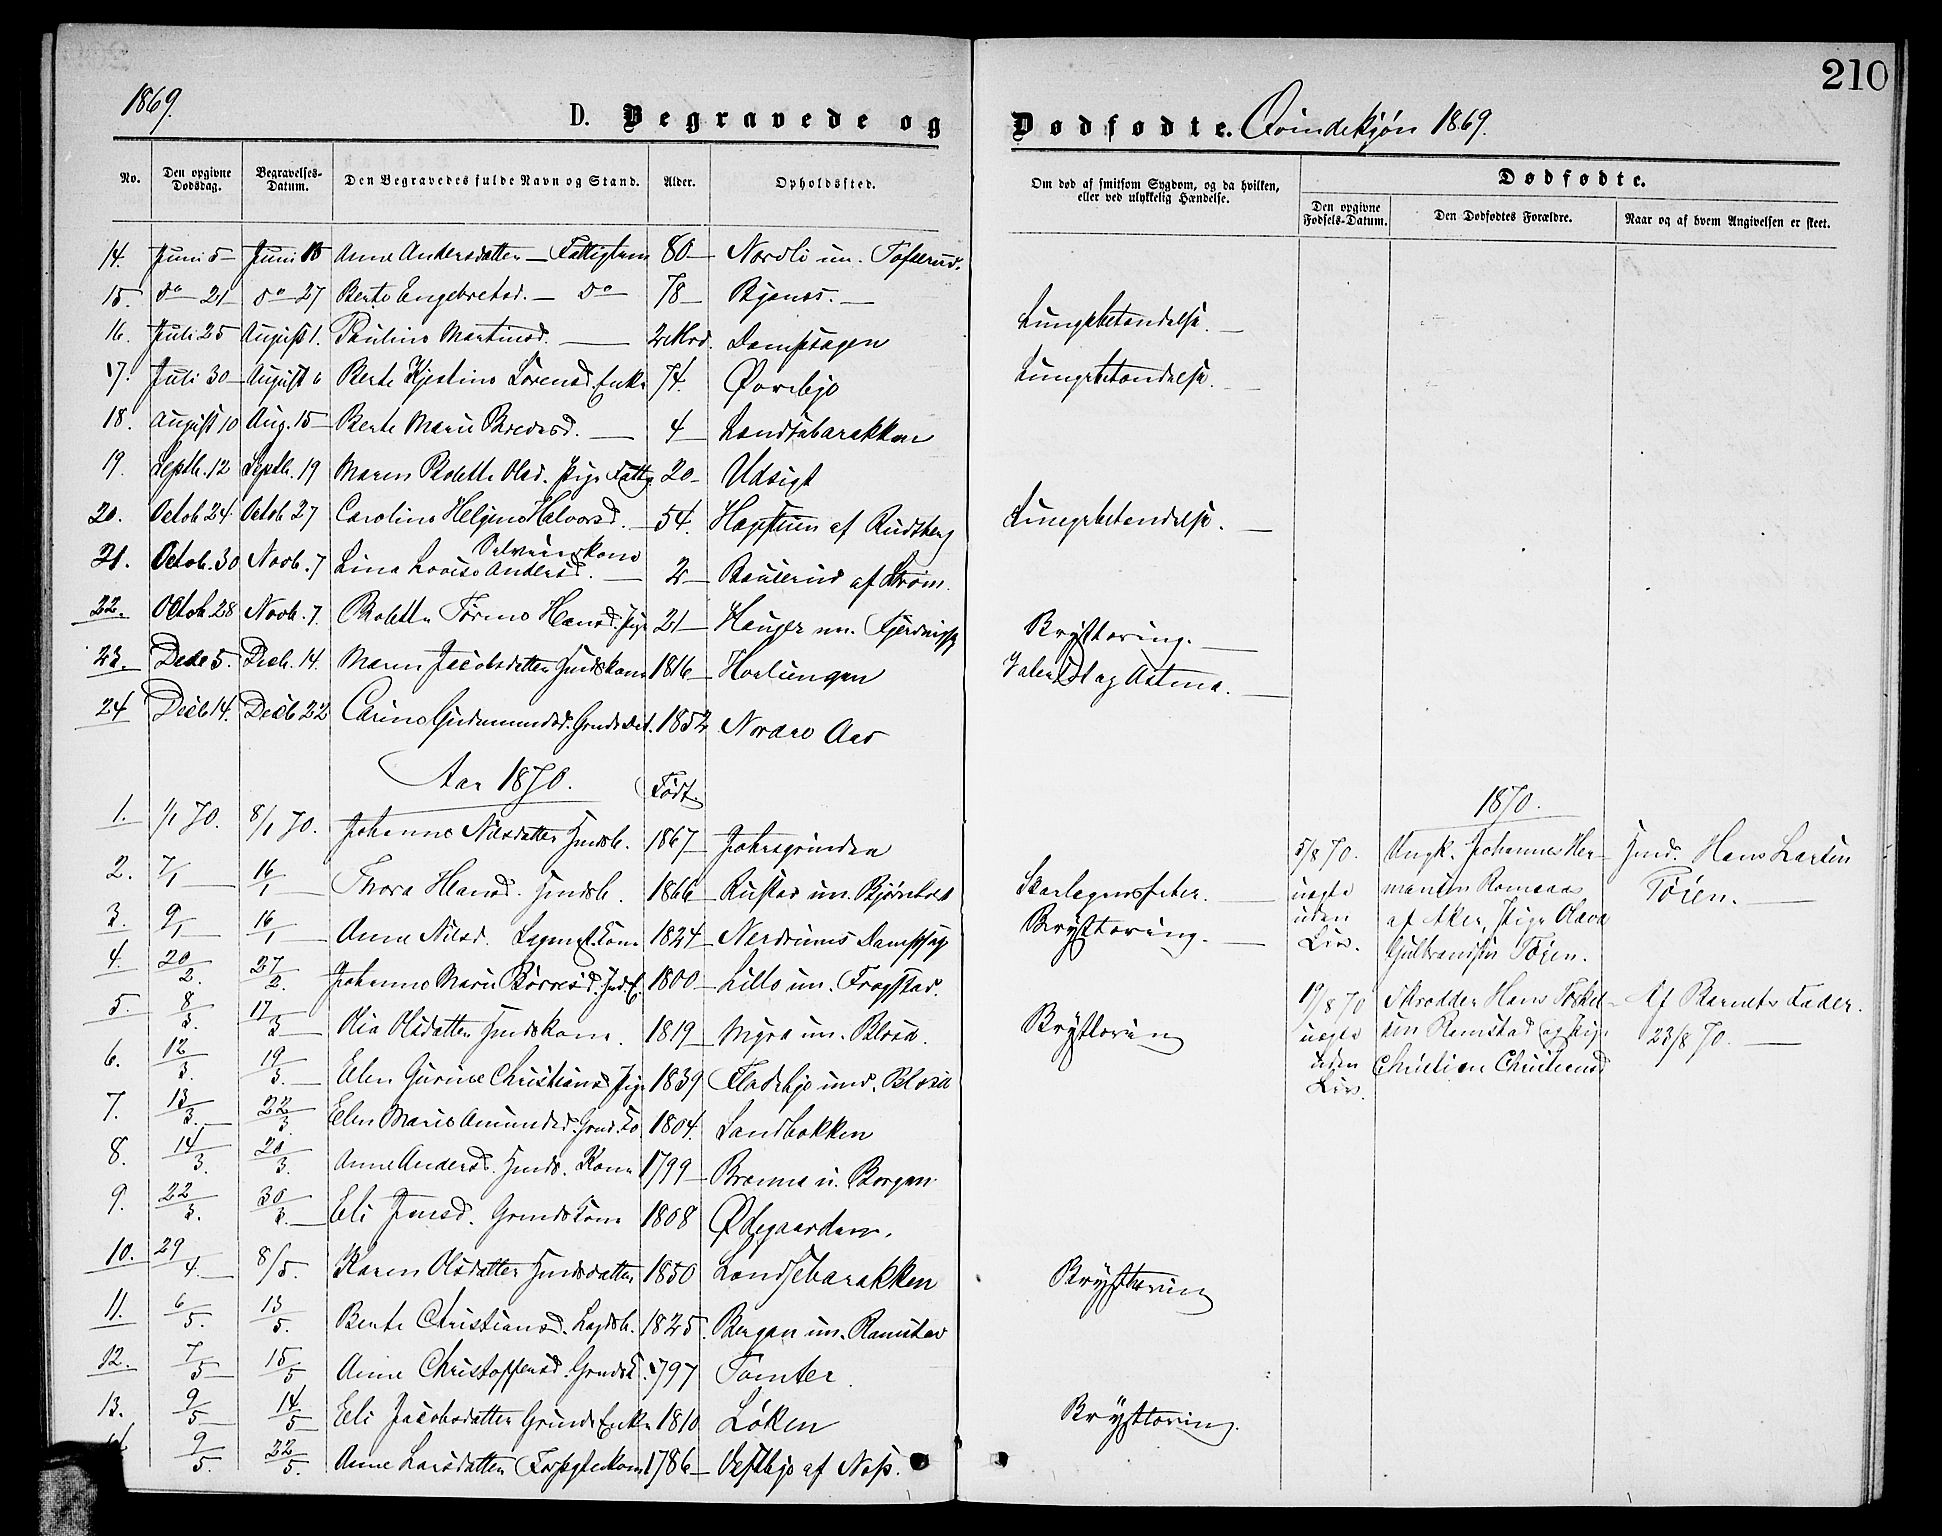 210
1869.
D. Begravede og Dødfødte. Qvindekjøn 1869.
No. Den opgivne Dødsdag. Begravelses-Datum. Den Begravedes fulde Navn og Stand. Alder. Opholdssted.
Om død af smitsom Sygdom, og da hvilken, eller ved ulykkelig Hændelse.
Dødfødte.
Den opgivne Fødsels-Datum. Den Dødfødtes Forældre. Naar og af hvem Angivelsen er skeet.
14. Juni 5 Juni 15 Anne Andersdatter — Fattiglem 80 — Nordli un. Tofserud.
15. do 21 do 27 Berte Engebretsd. — do 78 — Bjønos. — Lungebetendelse. —
16. Juli 25 August 1. Pauline Martinsd. — 2 Mnd. Dampsagen
17. Juli 30 August 6 Berte Kjestine Sørensd. Enke 74. Øvrebjo Lungebetendelse. —
18. August 10 Aug. 15 Berte Marie Bredesd. — 4 — Landsebarakken
19. Septb. 12 Septb. 19 Maren Bolette Olsd. Pige Fattg. 20 — Udsigt
20. Octob. 24 Octob. 27 Caroline Helgine Halvorsd. — 54. af Rudsberg Lungebetendelse. —
21. Octob. 30 Novb. 7 Lina Lovise Andersd. — 2 — af Strøm.
22. Octob. 28 Novb. 7. Bolette Hansd. Pige 21 — Hauger un. Brysttæring. —
23. Decb 5. Decb. 14. Maren Jacobsdatter Husmdskone 1816 — Astma. —
24 Decb 14. Decb 22 Carine Gudmundsd. 1852 Nordre Aas
Aar 1870. Født.
1870.
1. 1/1 70. 8/1 70. Johanne Nilsdatter Husmb. 1867 — Johnsgrinden
2. 7/1 16/1 Thora Hansd. Husmb. 1866 — Rustad un. Bjørnholt Skarlagensfeber. —
3. 9/1 16/1 Anne Nilsd. 1824 — Nerdrums Dampsag Brysttæring. —
4. 20/2 27/2. Johanne Marie Børresd. 1800 — Lille un. Frogstad.
5. 8/3. 17/3 Olia Olsdatter Husmdskone. 1819 — Myra un. Brysttæring
6. 12/3 19/3. Elen Gurine Christiansd. Pige 1839 Fladebjo und.
7. 13/3. 22/3. Elen Marie Amundsd. 1804. Sandbakken
8. 14/3. 20/3. Anne Andersd. Husmds. Kone 1799 — Brænna u. Borgen
9. 22/3. 30/3. Eli Jensd. 1808 Ødegaarden.
10. 29/4. 8/5. Karen Olsdatter Husmdsdatter 1850 Landsebarakken Brysttæring
11. 6/5. 13/5. Berte Christiansd. 1825. Bergan un. Ramstad
12. 7/5 15/5 Anne Christoffersd. 1797 Tomter.
13. 9/5 14/5 Eli Jacobsdatter Enke 1810 Løken Brysttæring.
9/5. 22/5. Anne Larsdatter 1786 — Vestbjo af Nøs.
5/8 70. uægte uden Liv.
Ungk. Johannes Hermansen Romsaas af Aker, Pige Olava Gulbransen Tøien.
Husmd. Hans Larsen Tøien. —
19/8 70 uægte uden Liv.
Skrædder Hans Ramstad og Pige Christine Christiansd
Af Barnets Fader. 23/8 70. —